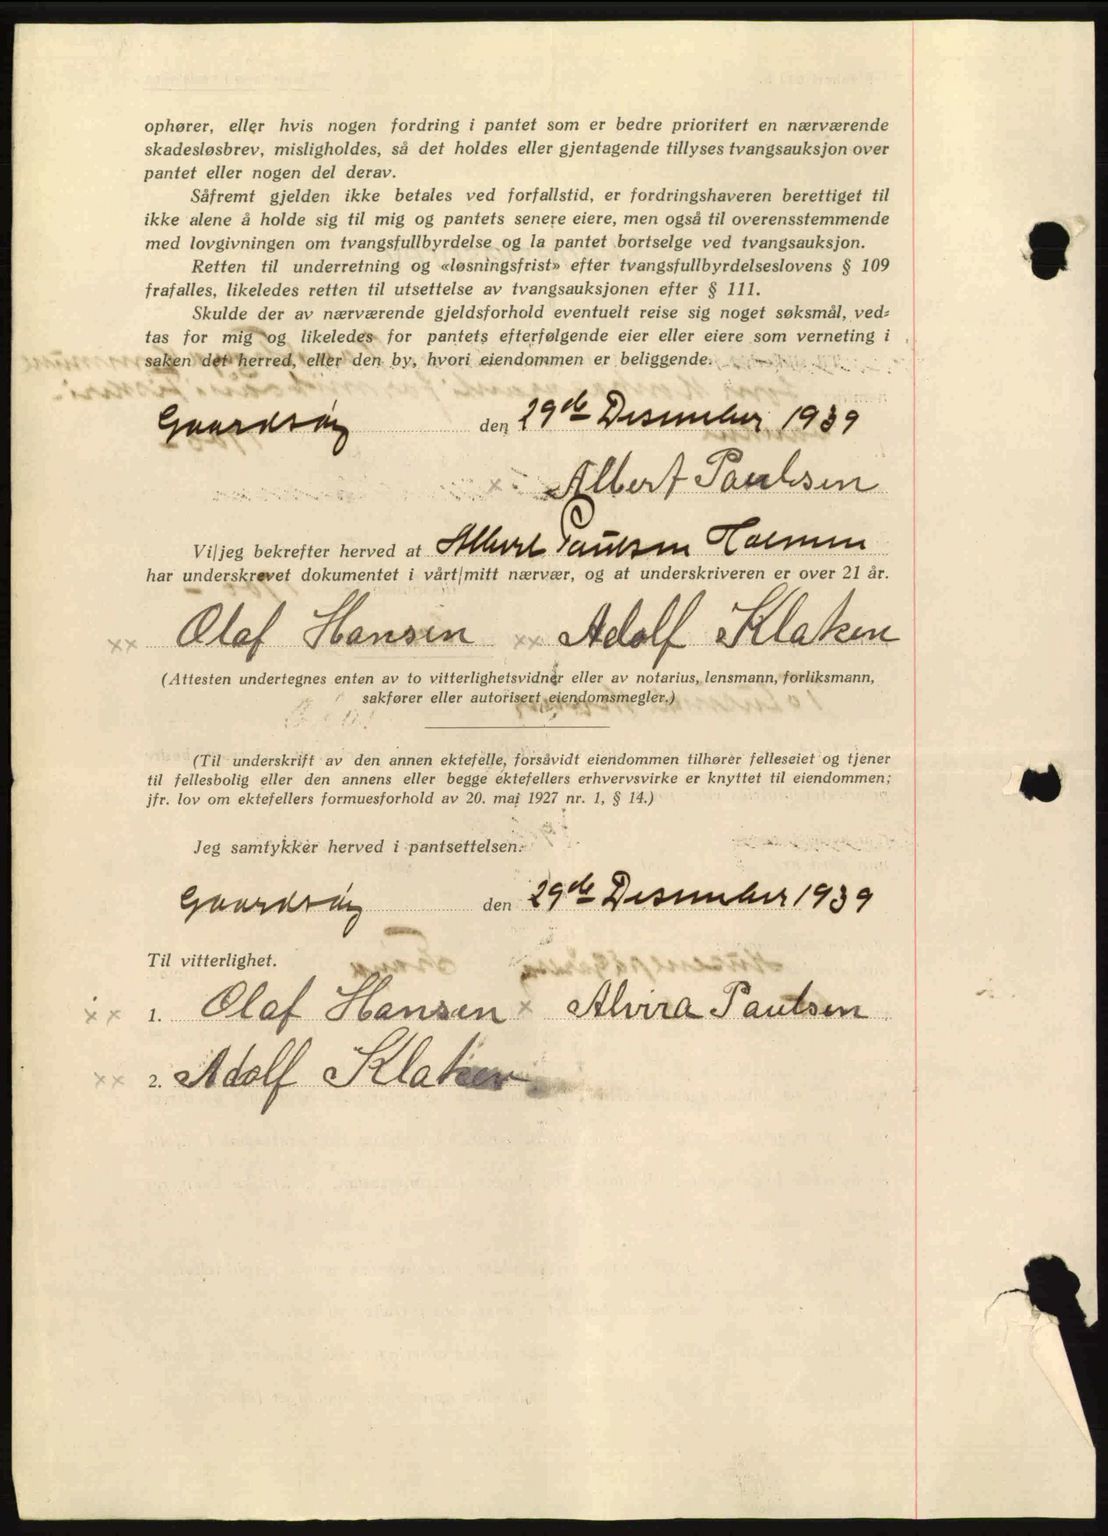 ophører, eller hvis nogen fordring i pantet som er bedre prioritert en nærværende
skadesløsbrev, misligholdes, så det holdes eller gjentagende tillyses tvangsauksjon over
pantet eller nogen del derav.
Såfremt gjelden ikke betales ved forfallstid, er fordringshaveren berettiget til
ikke alene å holde sig til mig og pantets senere eiere, men også til overensstemmende
med lovgivningen om tvangsfullbyrdelse og la pantet bortselge ved tvangsauksjon.
Retten til underretning og «løsningsfrist» efter tvangsfullbyrdelseslovens § 109
frafalles, likeledes retten til utsettelse av tvangsauksjonen efter § 111.
Skulde der av nærværende gjeldsforhold eventuelt reise sig noget søksmål, ved-
tas for mig og likeledes for pantets efterfølgende eier eller eiere som verneting i
saken det herred, eller den by, hvori eiendommen er beliggende.
Gaardsøy den 29de Desember 1939
x Albert Paulsen
Vi/jeg bekrefter herved at Albert Paulsen Holmen
har underskrevet dokumentet i vårt/mitt nærvær, og at underskriveren er over 21 år.
xx Olaf Hansen xx Adolf Klaken
(Attesten undertegnes enten av to vitterlighetsvidner eller av notarius, lensmann, forliksmann,
sakfører eller autorisert eiendomsmegler.)
(Til underskrift av den annen ektefelle, forsåvidt eiendommen tilhører felleseiet og tjener
til fellesbolig eller den annens eller begge ektefellers erhvervsvirke er knyttet til eiendommen;
jfr. lov om ektefellers formuesforhold av 20. mai 1927 nr. 1, § 14.)
Jeg samtykker herved i pantsettelsen.
Gaardsøy den 29de Desember 1939
Til vitterlighet.
xx 1. Olaf Hansen x Alvira Paulsen
xx 2. Adolf Klaken